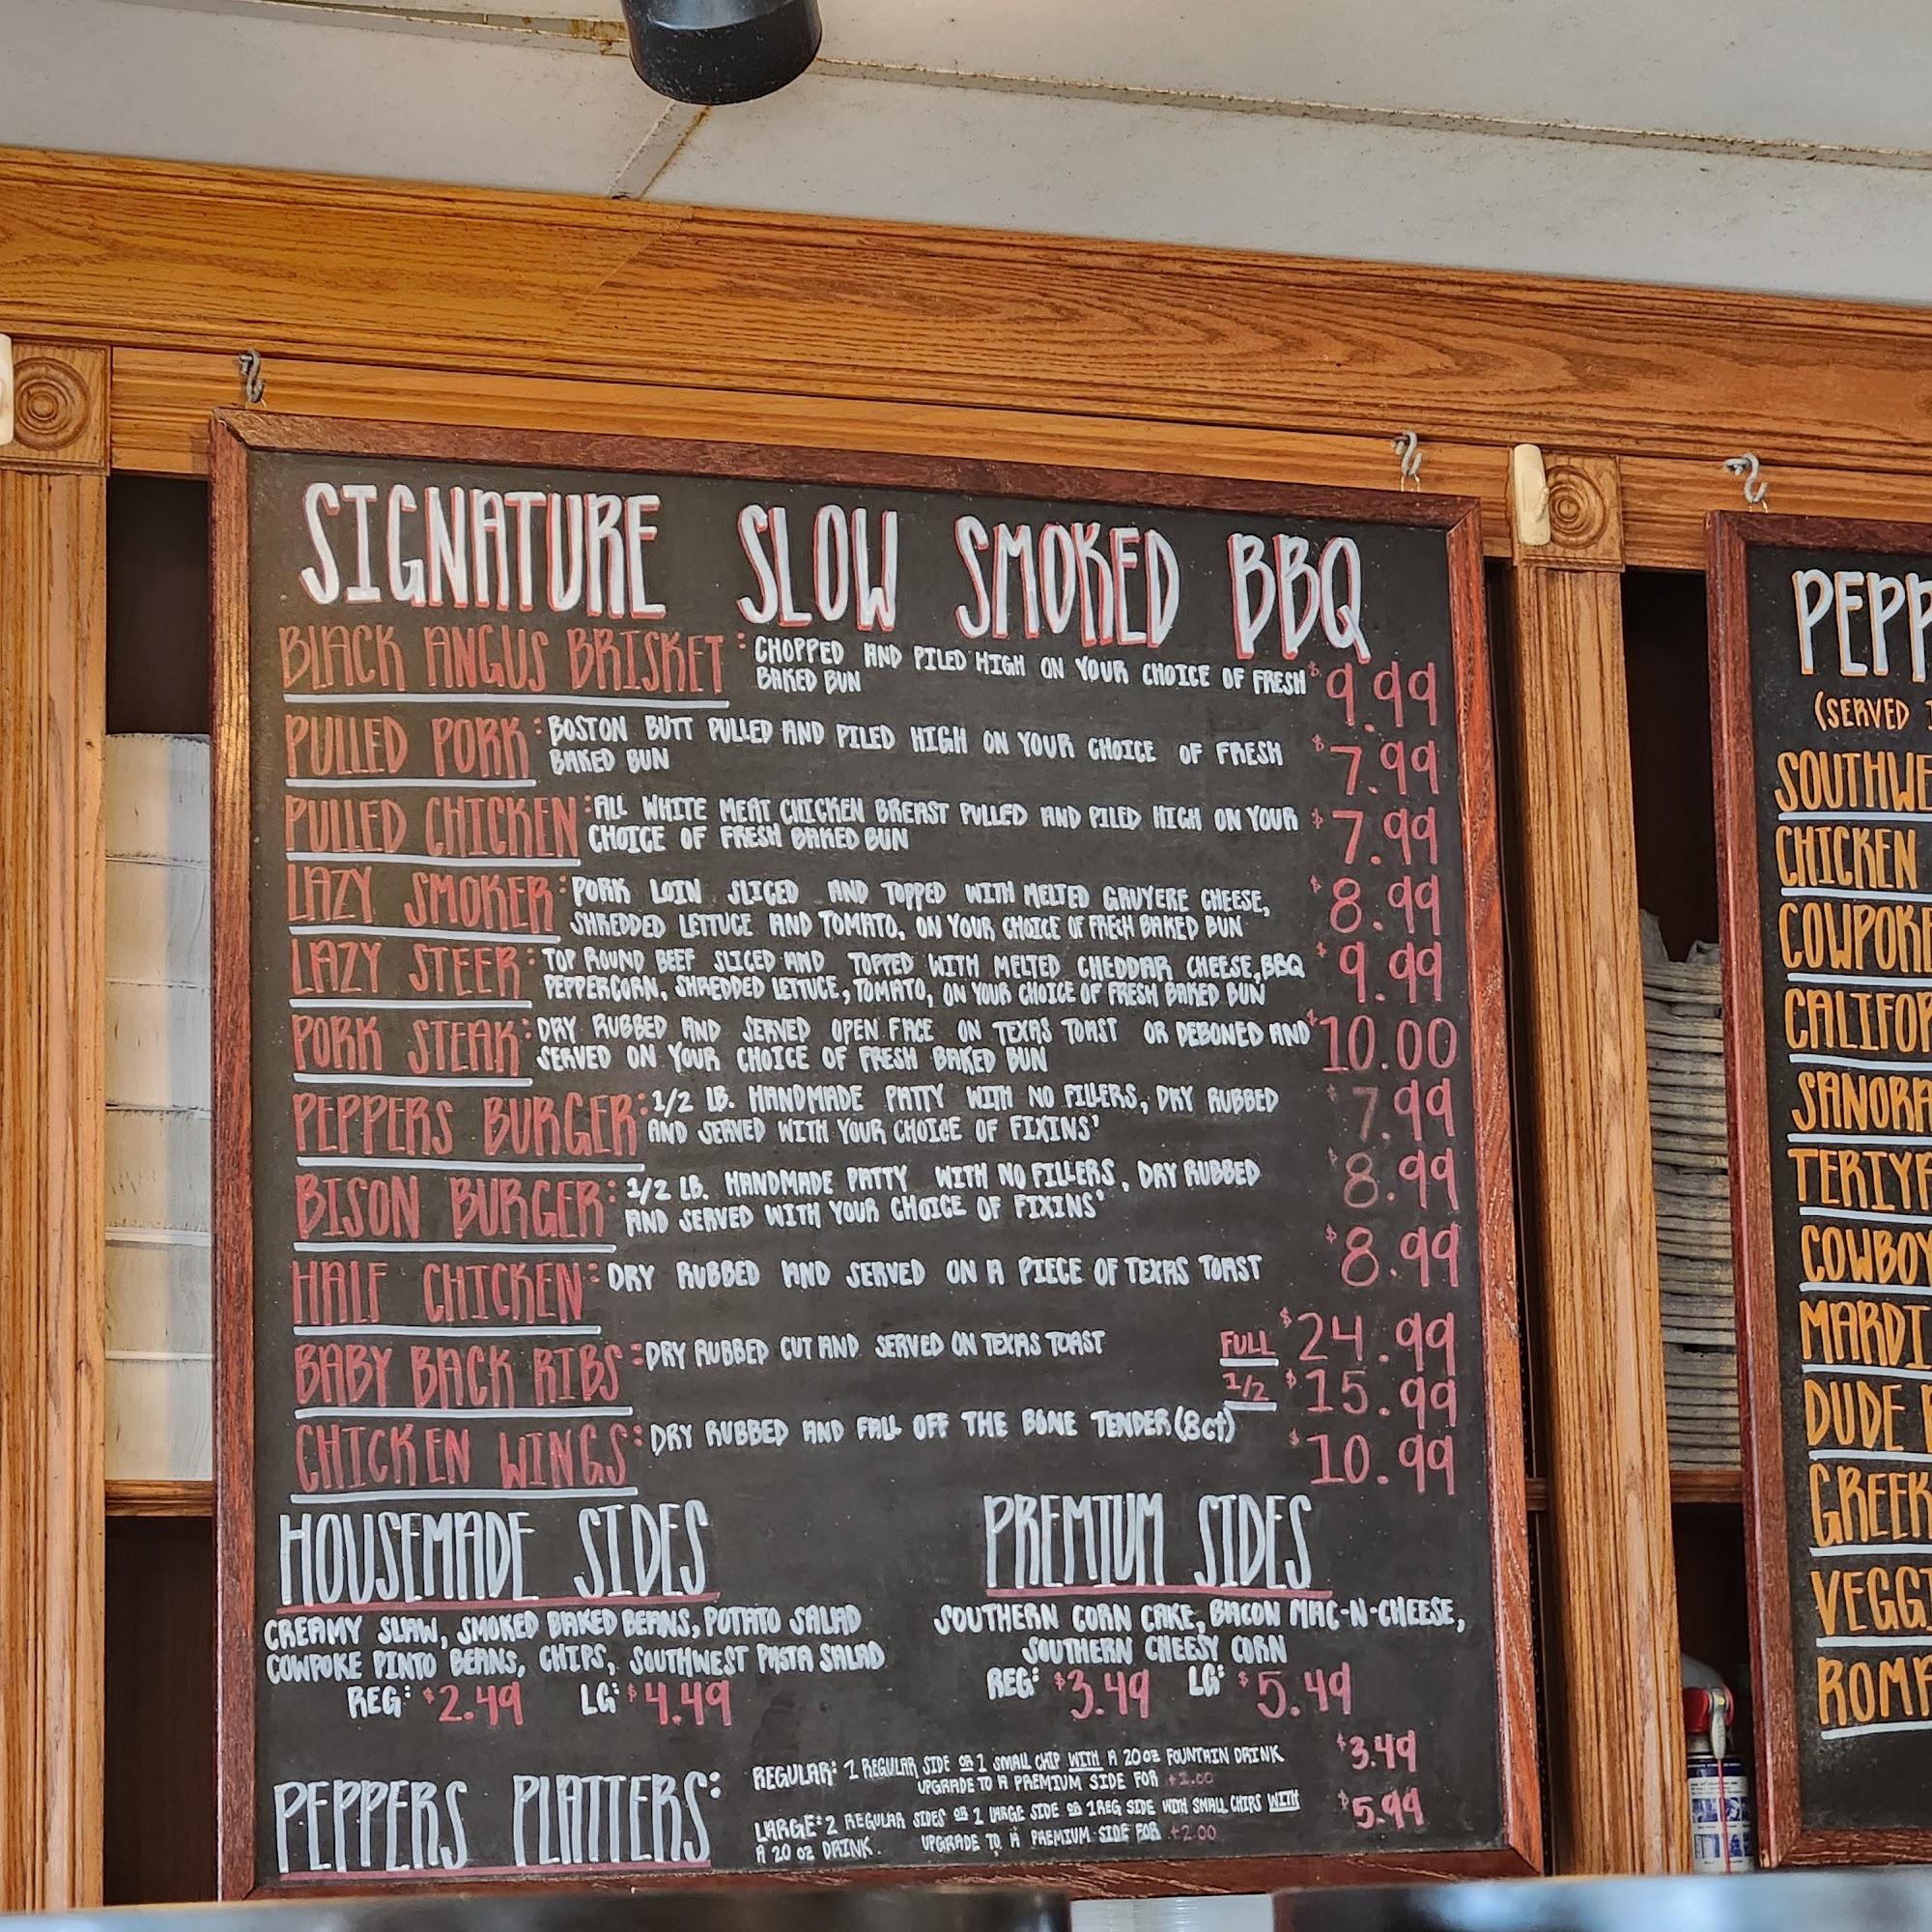 SIGNATURE SLOW SMOKED BBQ
BLACK ANGUS BRISKET: CHOPPED AND PILED HIGH ON YOUR CHOICE OF FRESH $9.99
BAKED BUN
PULLED PORK: BOSTON BUTT PULLED AND PILED HIGH ON YOUR CHOICE OF FRESH $7.99
BAKED BUN
PULLED CHICKEN: ALL WHITE MEAT CHICKEN BREAST PULLED AND PILED HIGH ON YOUR $7.99
CHOICE OF FRESH BAKED BUN
LAZY SMOKER: PORK LOIN SLICED AND TOPPED WITH MELTED GRUYERE CHEESE, $8.99
SHREDDED LETTUCE AND TOMATO, ON YOUR CHOICE OF FRESH BAKED BUN
LAZY STEER: TOP ROUND BEEF SLICED AND TOPPED WITH MELTED CHEDDAR CHEESE, BBQ $9.99
PEPPERCORN, SHREDDED LETTUCE, TOMATO, ON YOUR CHOICE OF FRESH BAKED BUN
PORK STEAK: DRY RUBBED AND SERVED OPEN FACE ON TEXAS TOAST OR DEBONED AND $10.00
SERVED ON YOUR CHOICE OF FRESH BAKED BUN
PEPPERS BURGER: 1/2 LB. HANDMADE PATTY WITH NO FILLERS, DRY RUBBED $7.99
AND SERVED WITH YOUR CHOICE OF FIXINS'
BISON BURGER: 1/2 LB. HANDMADE PATTY WITH NO FILLERS, DRY RUBBED $8.99
AND SERVED WITH YOUR CHOICE OF FIXINS'
HALF CHICKEN: DRY RUBBED AND SERVED ON A PIECE OF TEXAS TOAST $8.99
BABY BACK RIBS: DRY RUBBED CUT AND SERVED ON TEXAS TOAST FULL $24.99
1/2 $15.99
CHICKEN WINGS: DRY RUBBED AND FALL OFF THE BONE TENDER (8ct) $10.99
HOUSEMADE SIDES
CREAMY SLAW, SMOKED BAKED BEANS, POTATO SALAD
COWPOKE PINTO BEANS, CHIPS, SOUTHWEST PASTA SALAD
REG: $2.49 LG: $4.49
PREMIUM SIDES
SOUTHERN CORN CAKE, BACON MAC-N-CHEESE,
SOUTHERN CHEESY CORN
REG: $3.49 LG: $5.49
PEPPERS PLATTERS:
REGULAR: 1 REGULAR SIDE OR 1 SMALL CHIP WITH A 20 OZ FOUNTAIN DRINK $3.49
UPGRADE TO A PREMIUM SIDE FOR +1.00
LARGE: 2 REGULAR SIDES OR 1 LARGE SIDE OR 1 REG SIDE WITH SMALL CHIPS WITH $5.99
A 20 OZ DRINK. UPGRADE TO A PREMIUM SIDE FOR +2.00
PEPP
(SERVED
SOUTHWE
CHICKEN
COWPOKE
CALIFOR
SANORA
TERIYA
COWBOY
MARDI
DUDE
GREEK
VEGGI
ROMA